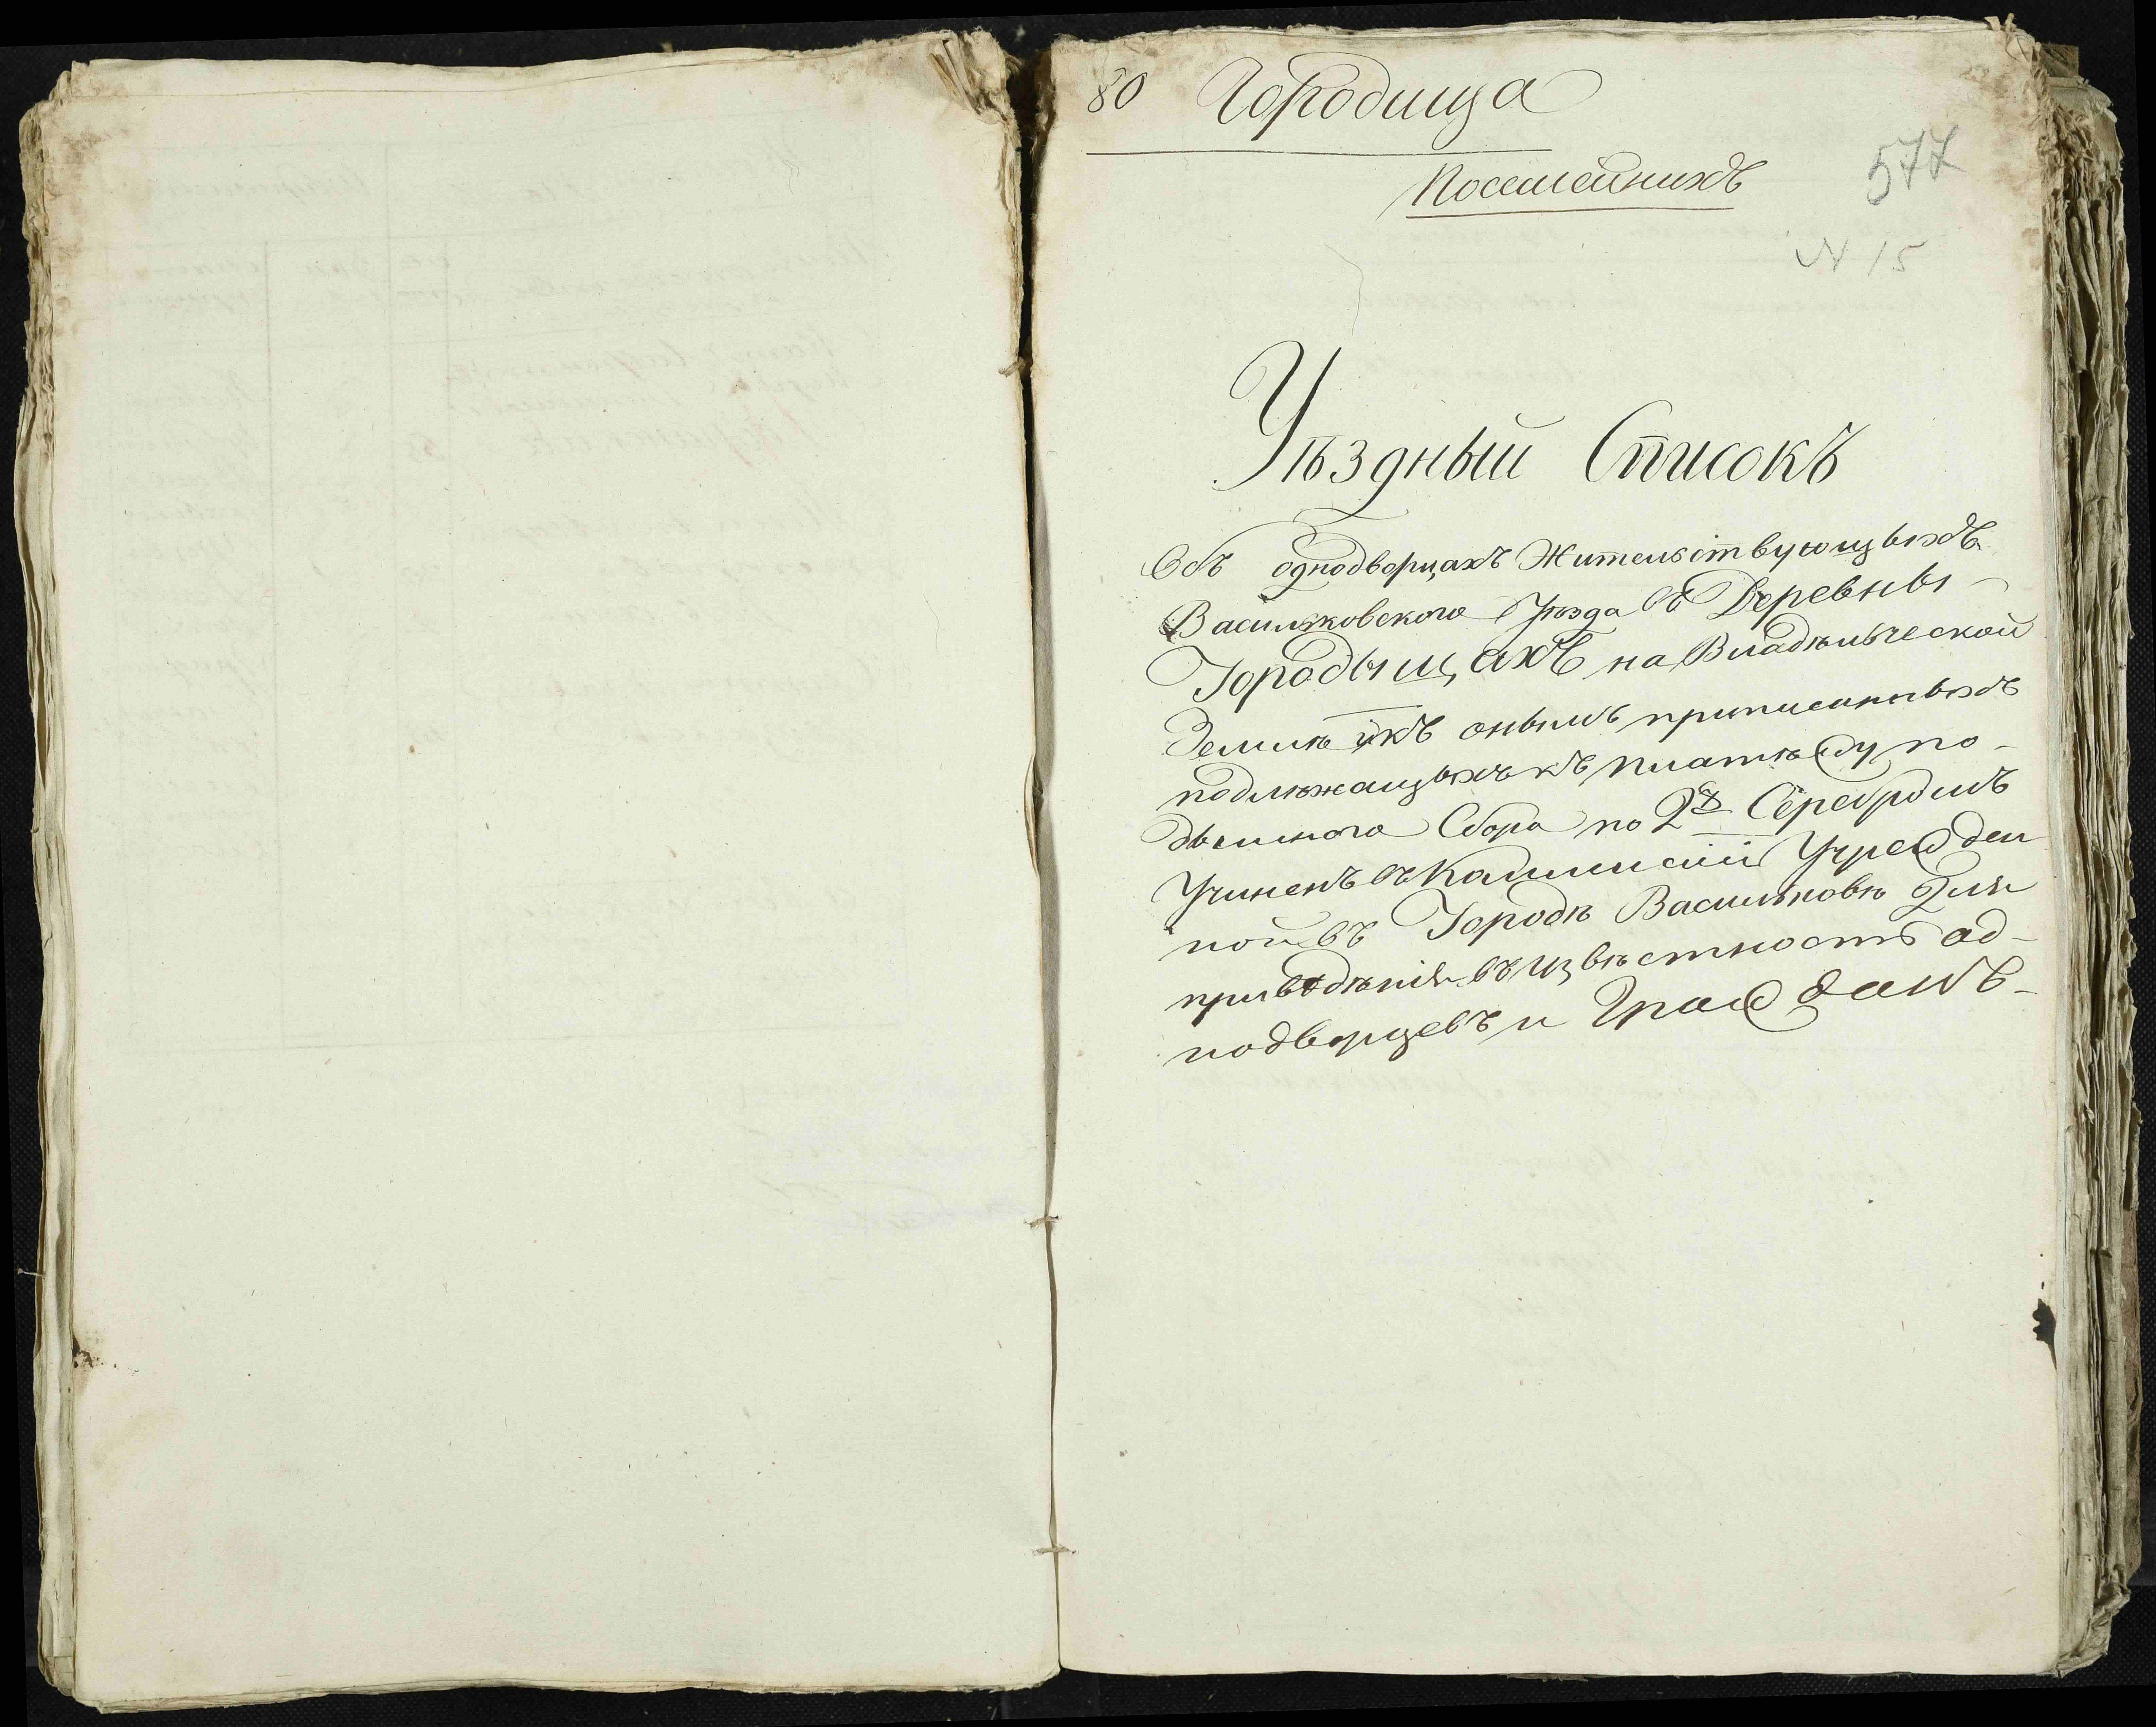 80 Городища
Посемейникъ
577
N 15
Уѣздный Списокъ
Объ однодворцахъ Жительствующыхъ
Васильковского Уѣзда въ Деревны
Городыщахъ на Владѣльческой
Землѣ икъ онымъ приписаныхъ
подлѣжащыхъ къ платѣжу по-
дымного Сбора по 2 Серебромъ
Учиненъ въ Каммисіи Учрежден
ной въ Городѣ Васильковѣ Для
приведѣнія въ извѣстность од-
нодворцевъ и Гражданъ-